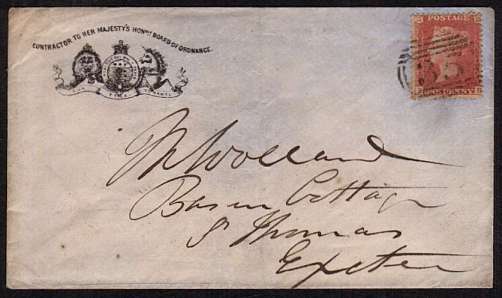 CONTRACTOR TO HER MAJESTY'S HONBL BOARD OF ORDNANCE.
POSTAGE
ONE PENNY
M Wolland
Cottage
St Thomas
Exeter